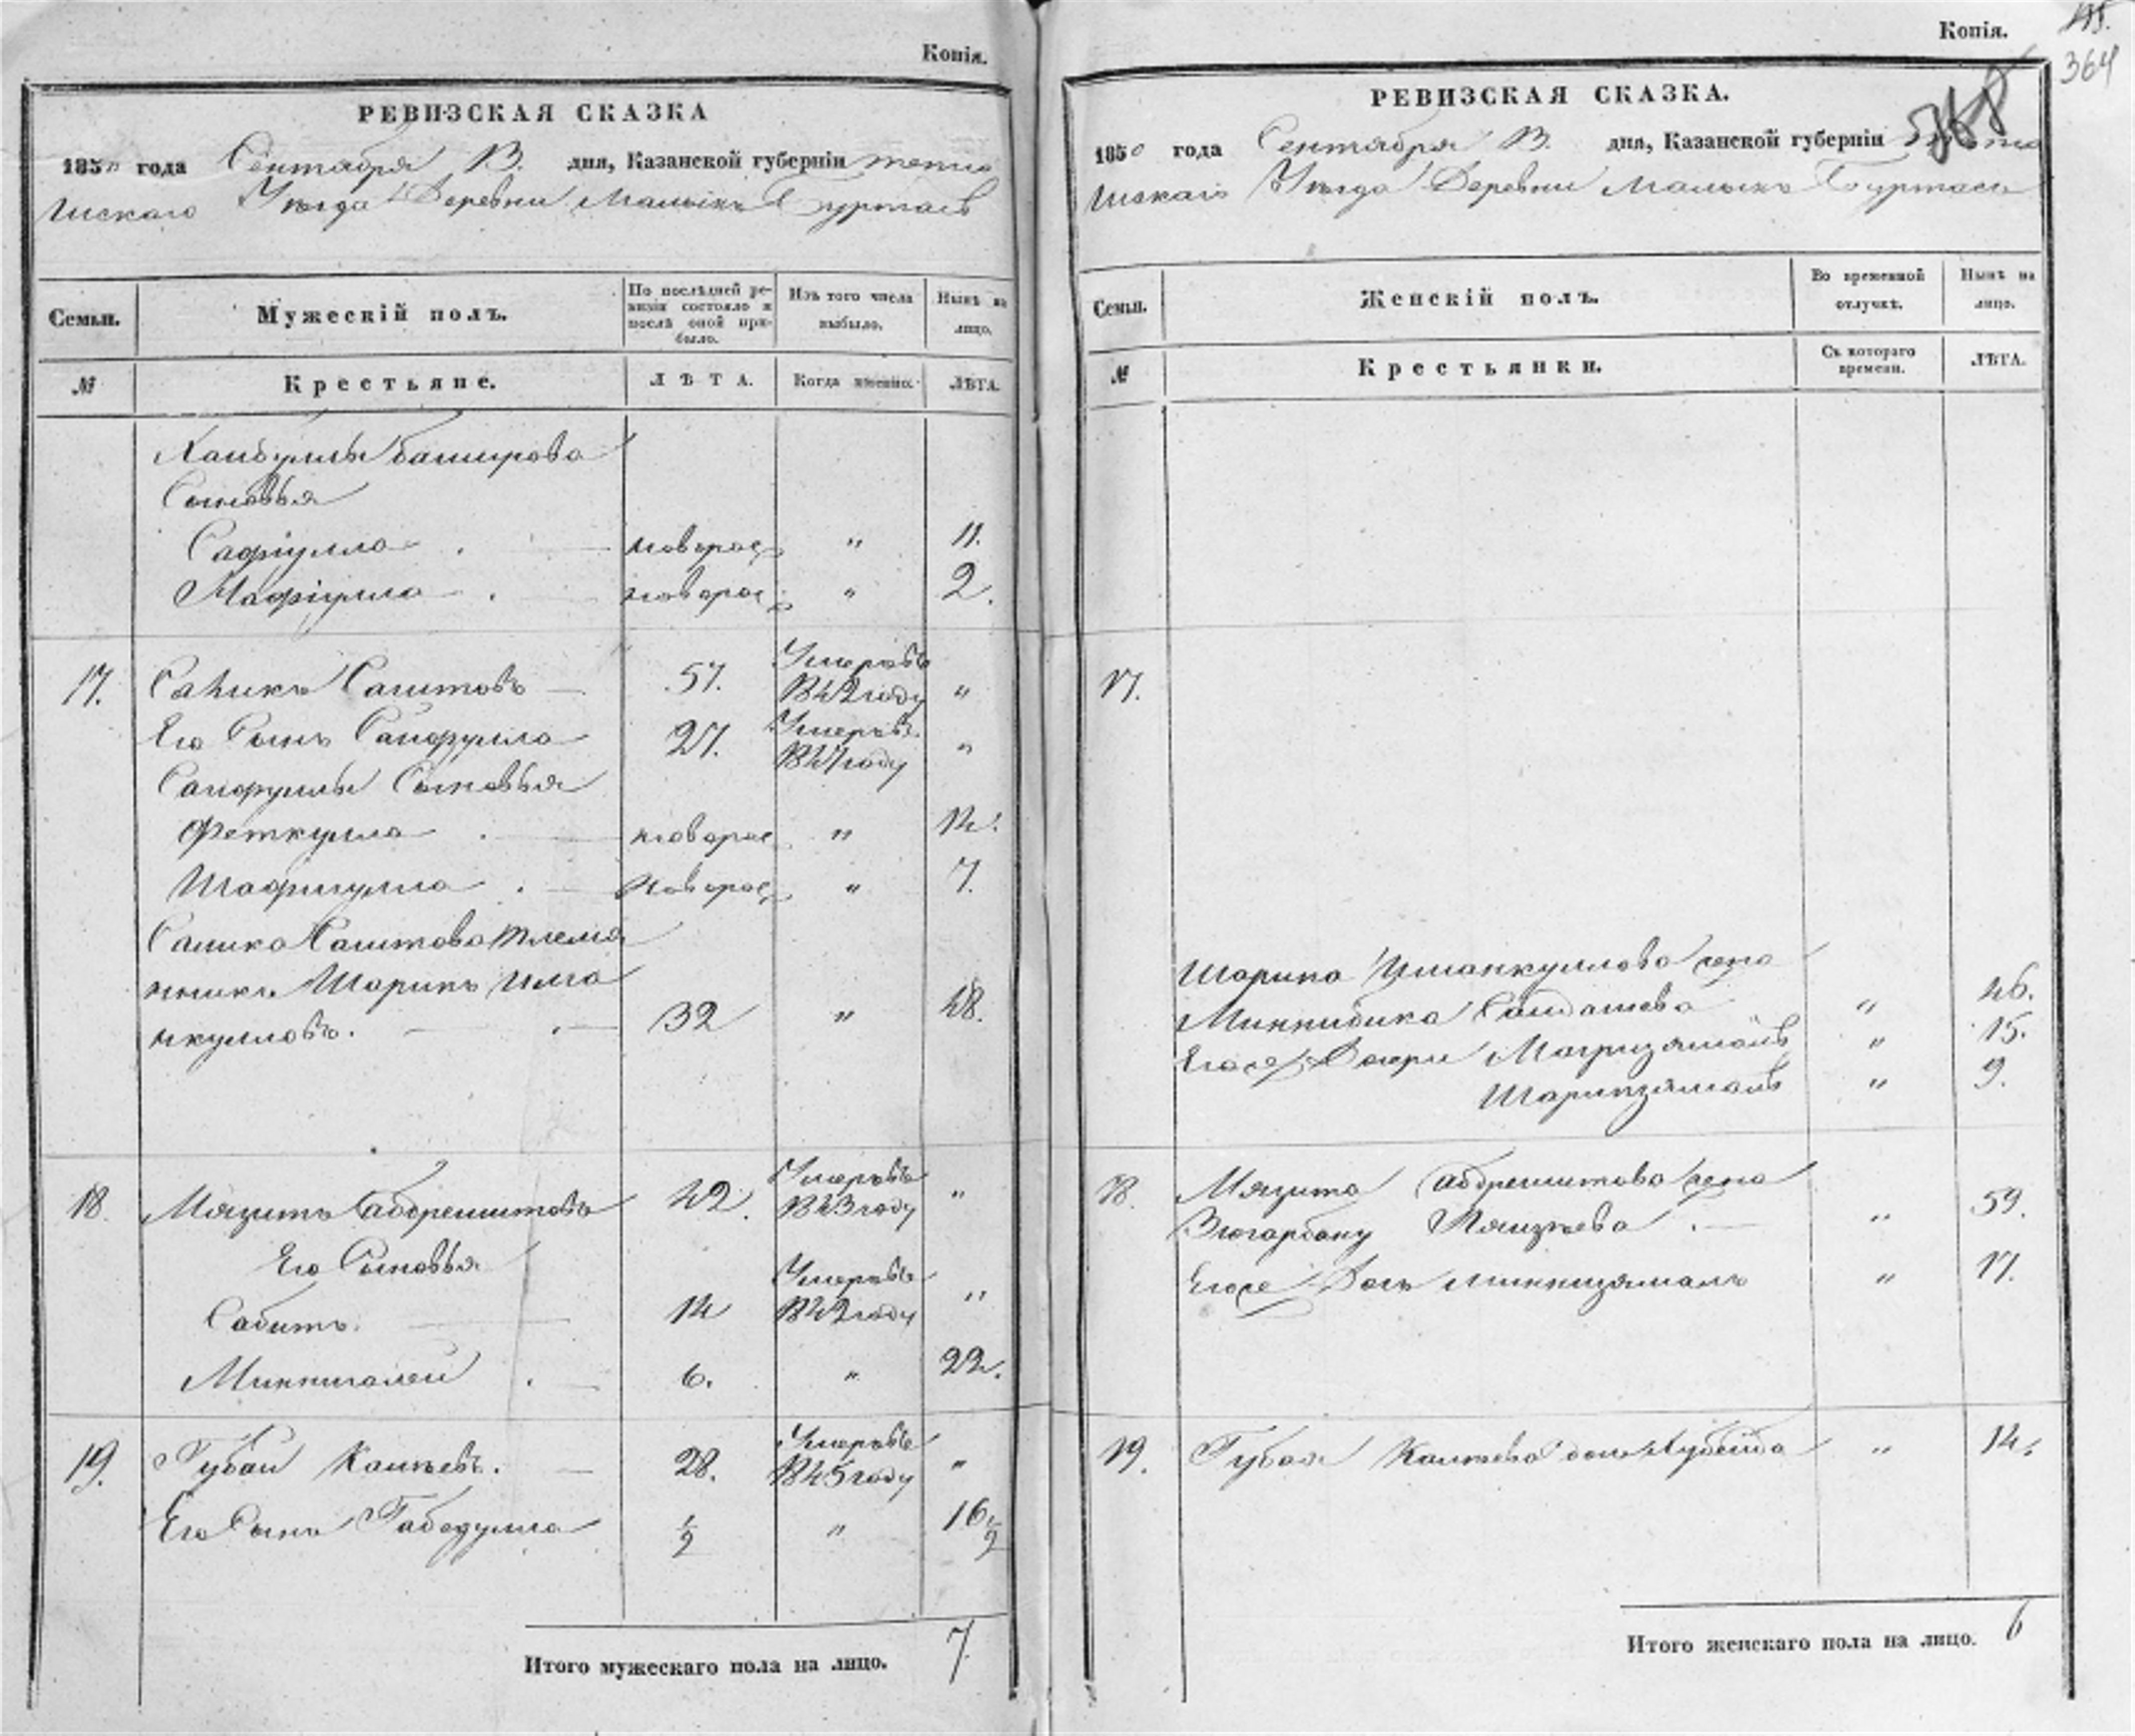 Копія.
РЕВИЗСКАЯ СКАЗКА
1850 года Сентября 13. дня, Казанской губерніи тетю
шскаго Уѣзда Деревни Малыхъ Буртасъ
Семьи.
Мужескій полъ.
По послѣдней ре-
визіи состояло и
послѣ оной при-
было.
Изъ того числа
выбыло.
Нынѣ на
лицо.
№
Крестьяне.
ЛѢТА.
Когда именно.
ЛѢТА.
Баширова
Сыновья
Сафіулла новорос „ 11.
новорос „ 2.
17. Садикъ Саитовъ 57. Умеръ въ
1842 году „
Его Сынъ 27. Умеръ въ
1847 году „
Сыновья
Феткулла новорос „ 14.
Шафигулла новорос „ 7.
Саитова племя
нникъ Шарипъ Има
нкуловъ. 32 „ 48.
18. Мязитъ Габдрешитовъ 42. Умеръ въ
1843 году „
Его Сыновья
Сабитъ. 14 Умеръ въ
1842 году „
Миннигалей 6. „ 22.
19. Губай Канѣевъ. 28. Умеръ въ
1845 году „
Его Сынъ Габедулла ½ „ 16½
Итого мужескаго пола на лицо. 7.
Копія.
364
РЕВИЗСКАЯ СКАЗКА.
1850 года Сентября 13. дня, Казанской губерніи
шскаго Уѣзда Деревни Малыхъ Буртасъ
Семьи.
Женскій полъ.
Во временной
отлучкѣ.
Нынѣ на
лицо.
№
Крестьянки.
Съ котораго
времени.
ЛѢТА.
17.
Шарипа Иманкулова жена
Миннибика „ 46.
Егоже Дочери „ 15.
Шарипзямалъ „ 9.
18. Мязита Габдрешитова жена
„ 59.
Егоже Дочь Миннизямалъ „ 17.
19. Губая Канѣева дочь „ 14.
Итого женскаго пола на лицо. 6